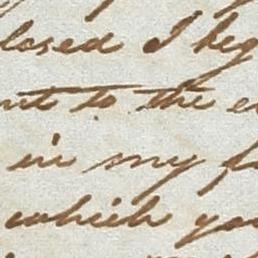 losed I beg
nt to the e
in my f
which yo